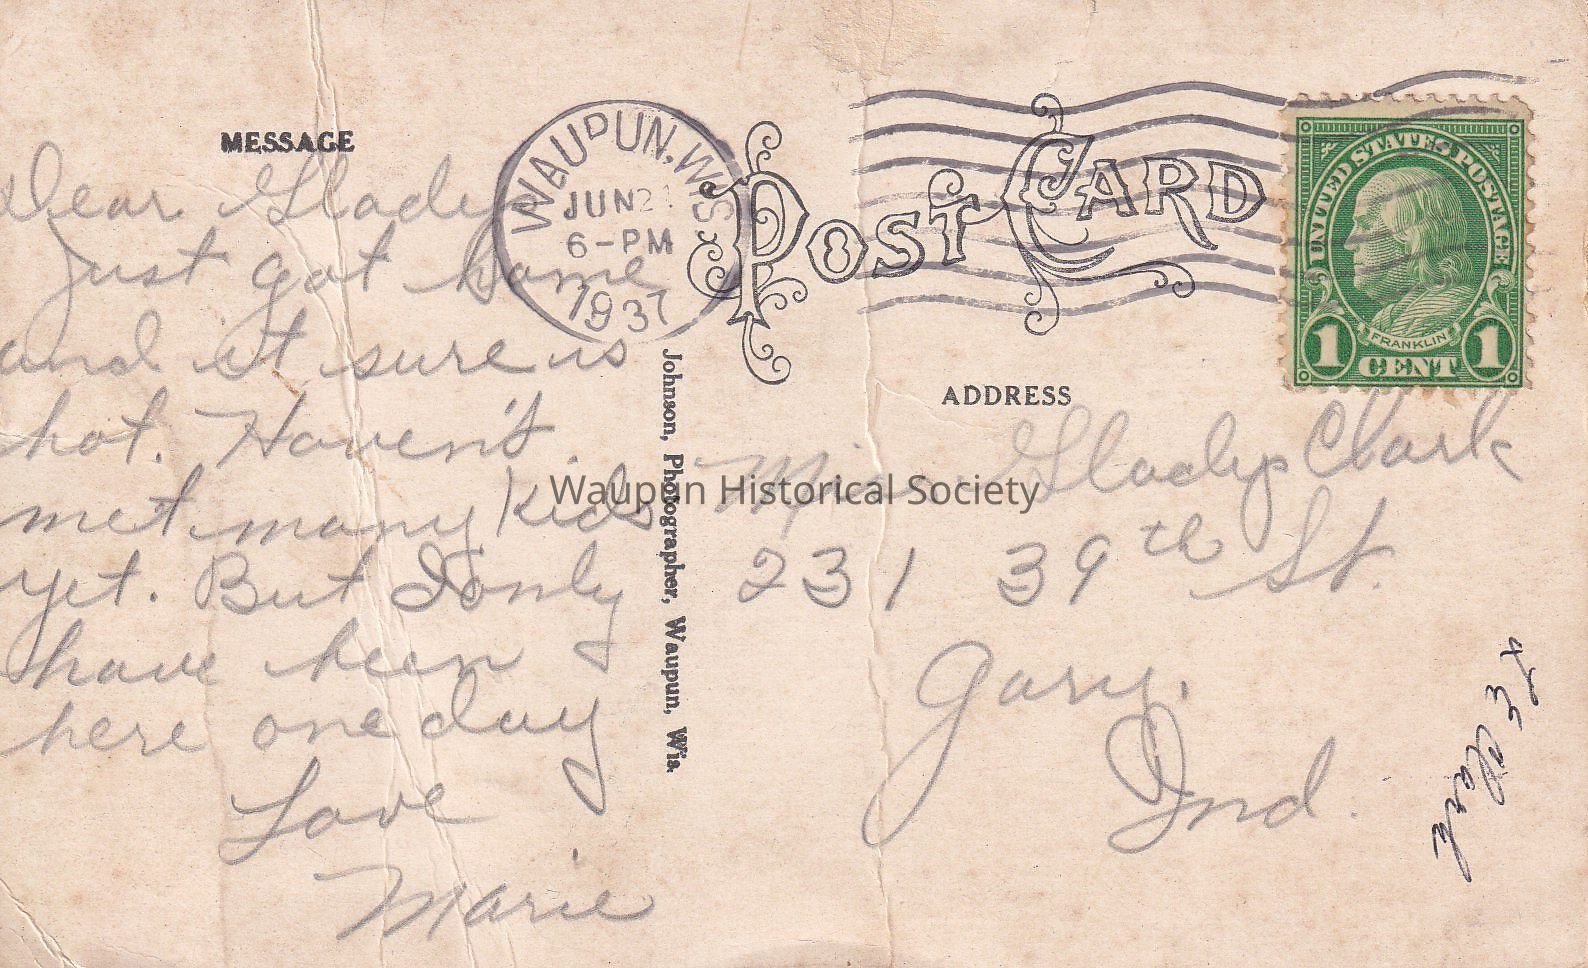 MESSAGE
Dear Gladys
Just got home
and it sure is
hot. Haven't
met many kids
yet. But I only
have been
here one day
Love
Marie
WAUPUN, WIS.
JUN 21
6-PM
1937
POST CARD
Johnson, Photographer, Waupun, Wis.
UNITED STATES POSTAGE
FRANKLIN
1 CENT 1
ADDRESS
Miss Gladys Clark
231 39th St.
Gary.
Ind.
Waupun Historical Society